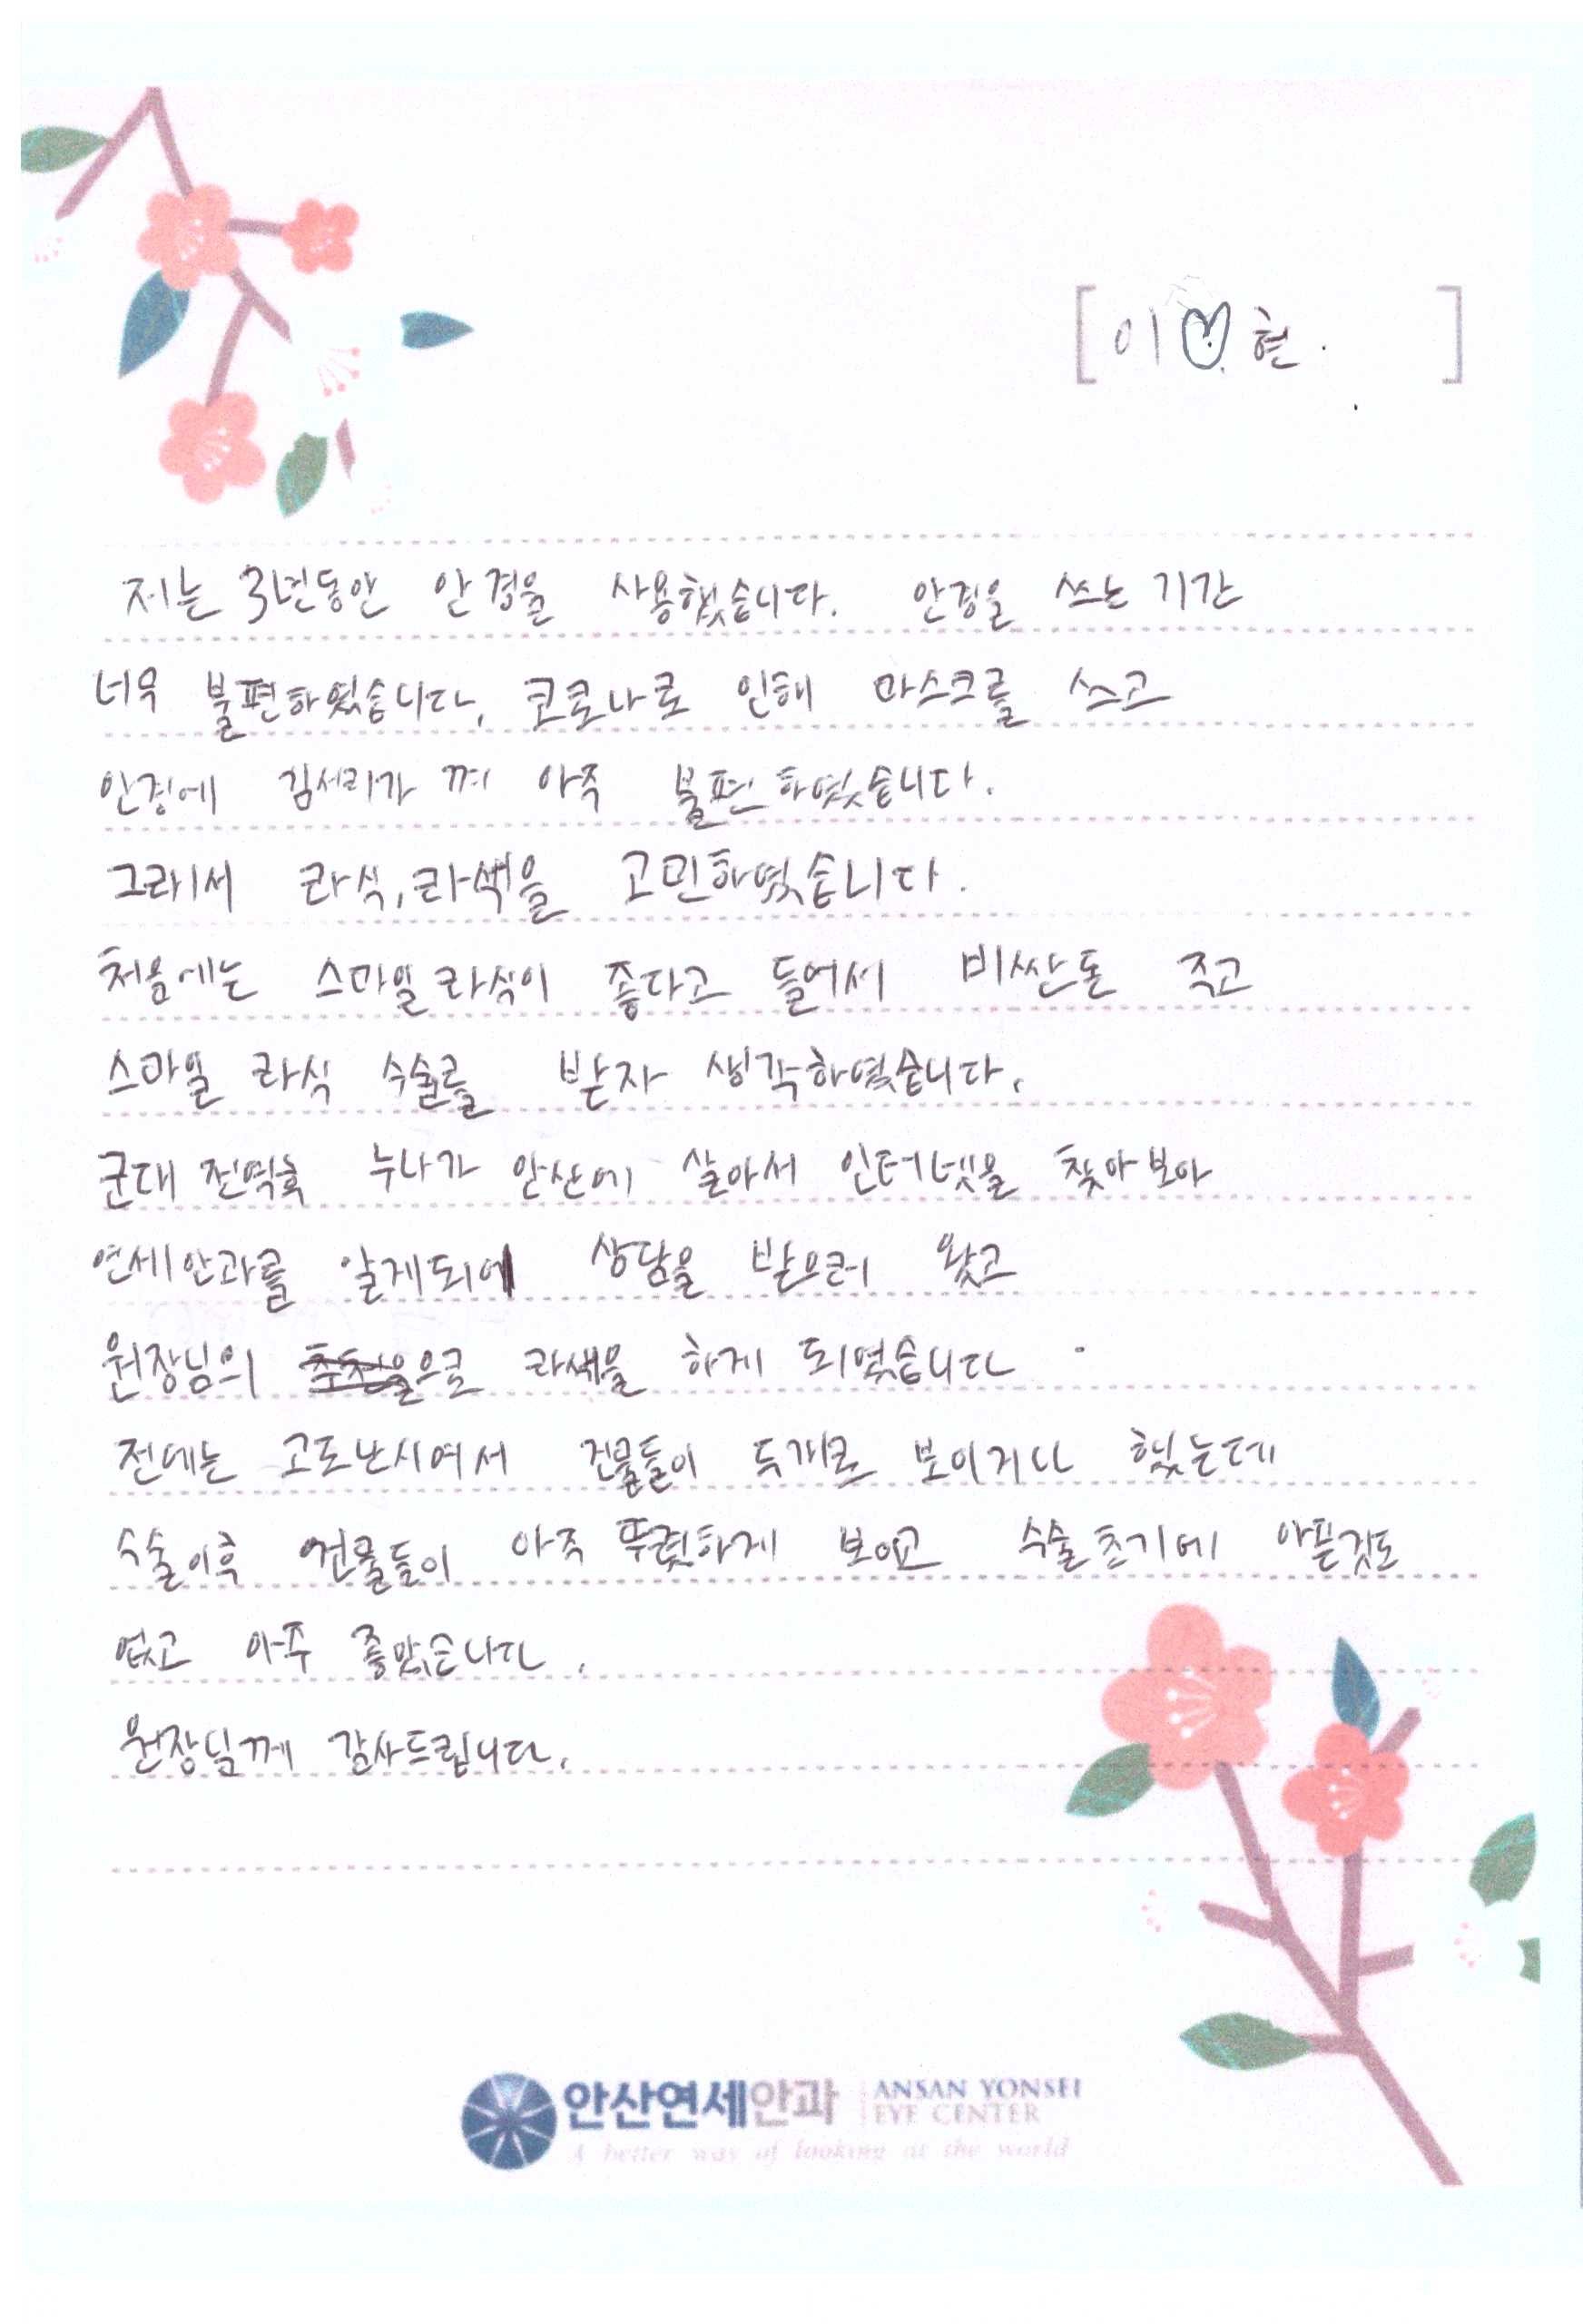 [이♡현. ]
저는 3년동안 안경을 사용했습니다. 안경을 쓰는 기간
너무 불편하였습니다, 코로나로 인해 마스크를 쓰고
안경에 김서리가 껴 아주 불편하였습니다.
그래서 라식, 라섹을 고민하였습니다.
처음에는 스마일라식이 좋다고 들어서 비싼돈 주고
스마일 라식 수술를 받자 생각하였습니다.
군대 전역후 누나가 안산에 살아서 인터넷을 찾아보아
연세안과를 알게되어 상담을 받으러 왔고
원장님의 으로 라섹을 하게 되었습니다
전에는 고도난시여서 건물들이 두개로 보이거나 했는데
수술이후 건물들이 아주 뚜렷하게 보이고 수술초기에 아픈것도
없고 아주 좋았습니다.
원장님께 감사드립니다.
안산연세안과 ANSAN YONSEI
EYE CENTER
A better way of looking at the world